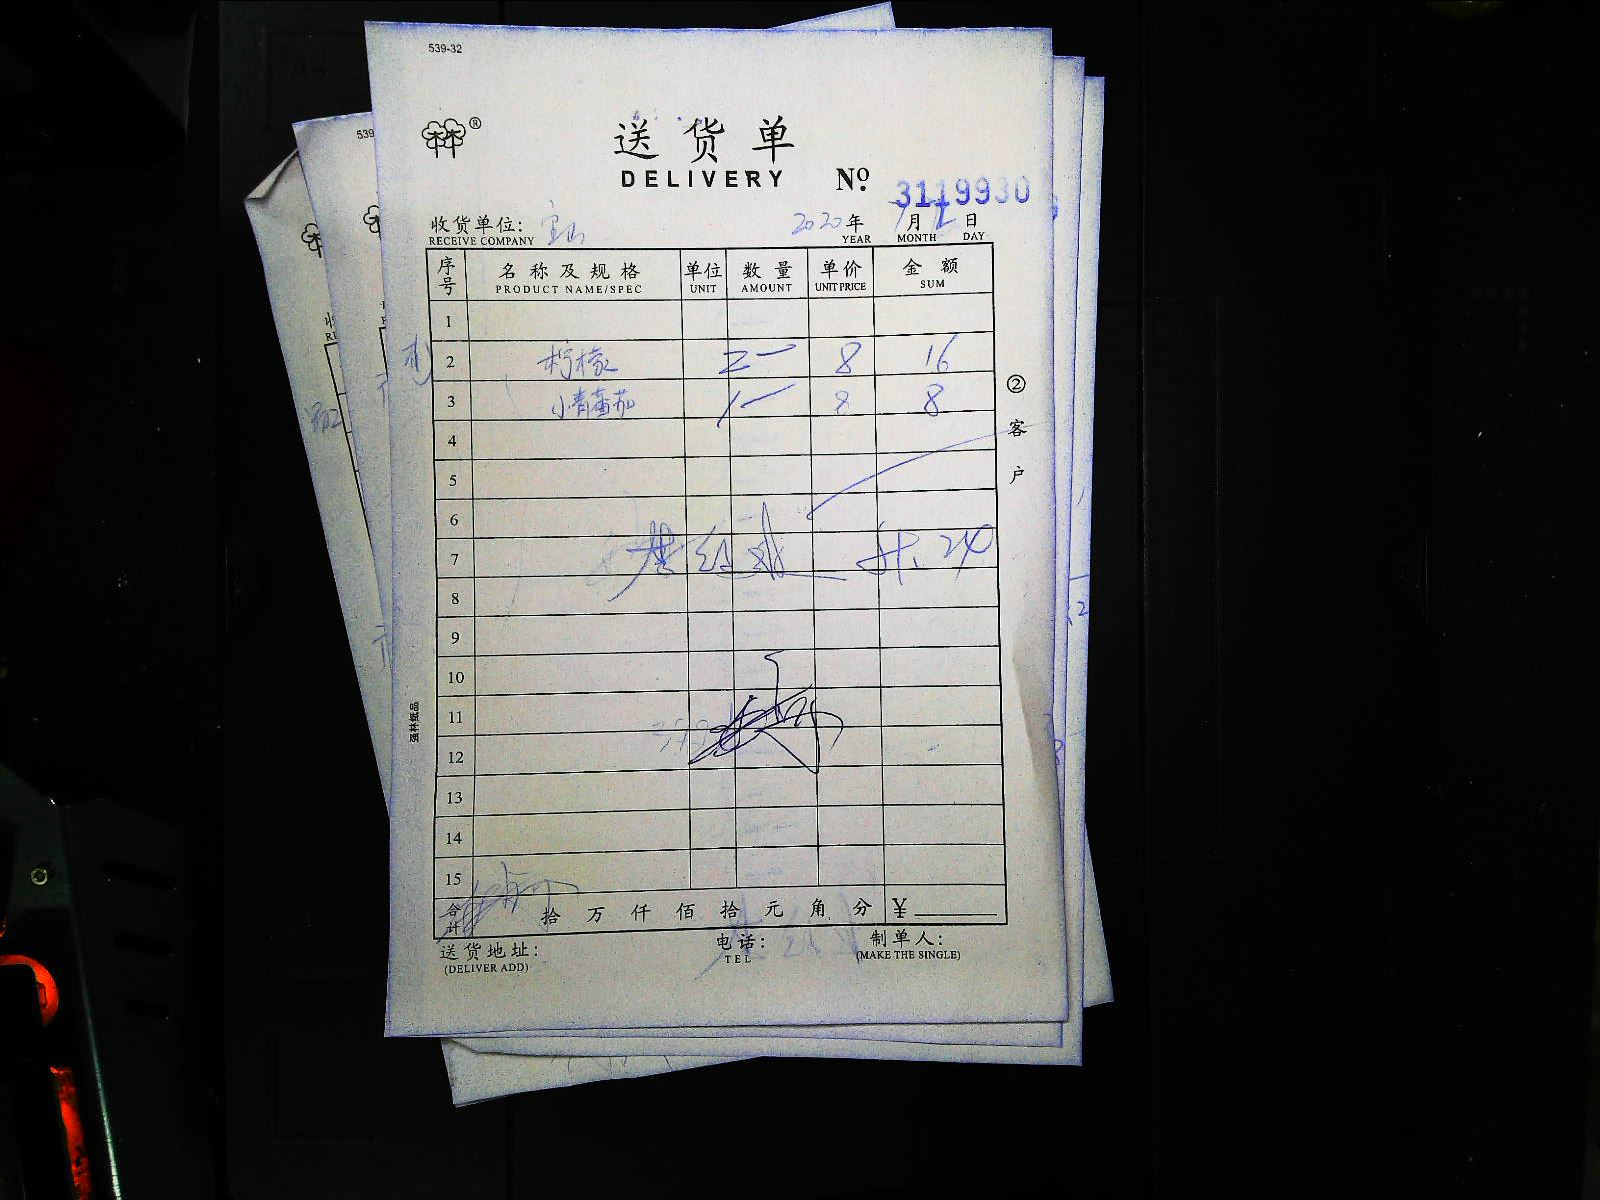 539-32
539
®
送货单
DELIVERY
Nº 3119930
收货单位: 宝山 2020年 月 日
RECEIVE COMPANY YEAR MONTH DAY
序号 名称及规格 单位 数量 单价 金额
PRODUCT NAME/SPEC UNIT AMOUNT UNIT PRICE SUM
1
2 柠檬 2 8 16
3 小青番茄 1 8 8
4
5
6
7 共. 24
8
9
10
11
12
13
14
15
合计 拾万仟佰拾元角分 ¥
送货地址: 电话: 制单人:
(DELIVER ADD) TEL (MAKE THE SINGLE)
②客户
强林纸品